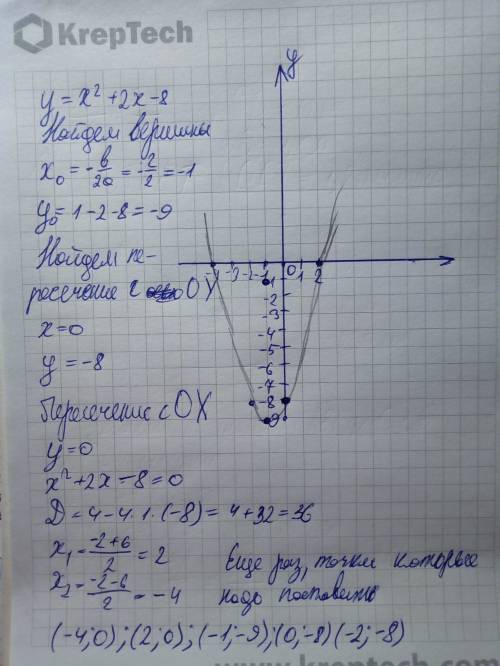 KrepTech
y
y = x² + 2x - 8
Найдем вершины
x₀ = -b/2a = -2/2 = -1
y₀ = 1 - 2 - 8 = -9
Найдем пе-
ресечение с OY
x = 0
y = -8
Пересечение с OX
y = 0
x² + 2x - 8 = 0
D = 4 - 4·1·(-8) = 4 + 32 = 36
x₁ = (-2+6)/2 = 2
x₂ = (-2-6)/2 = -4
Еще раз, точки которые
надо поставить
(-4;0);(2;0);(-1;-9);(0;-8)(-2;-8)
-4 -3 -2 -1 0 1 2
-2
-3
-4
-5
-6
-7
-8
-9